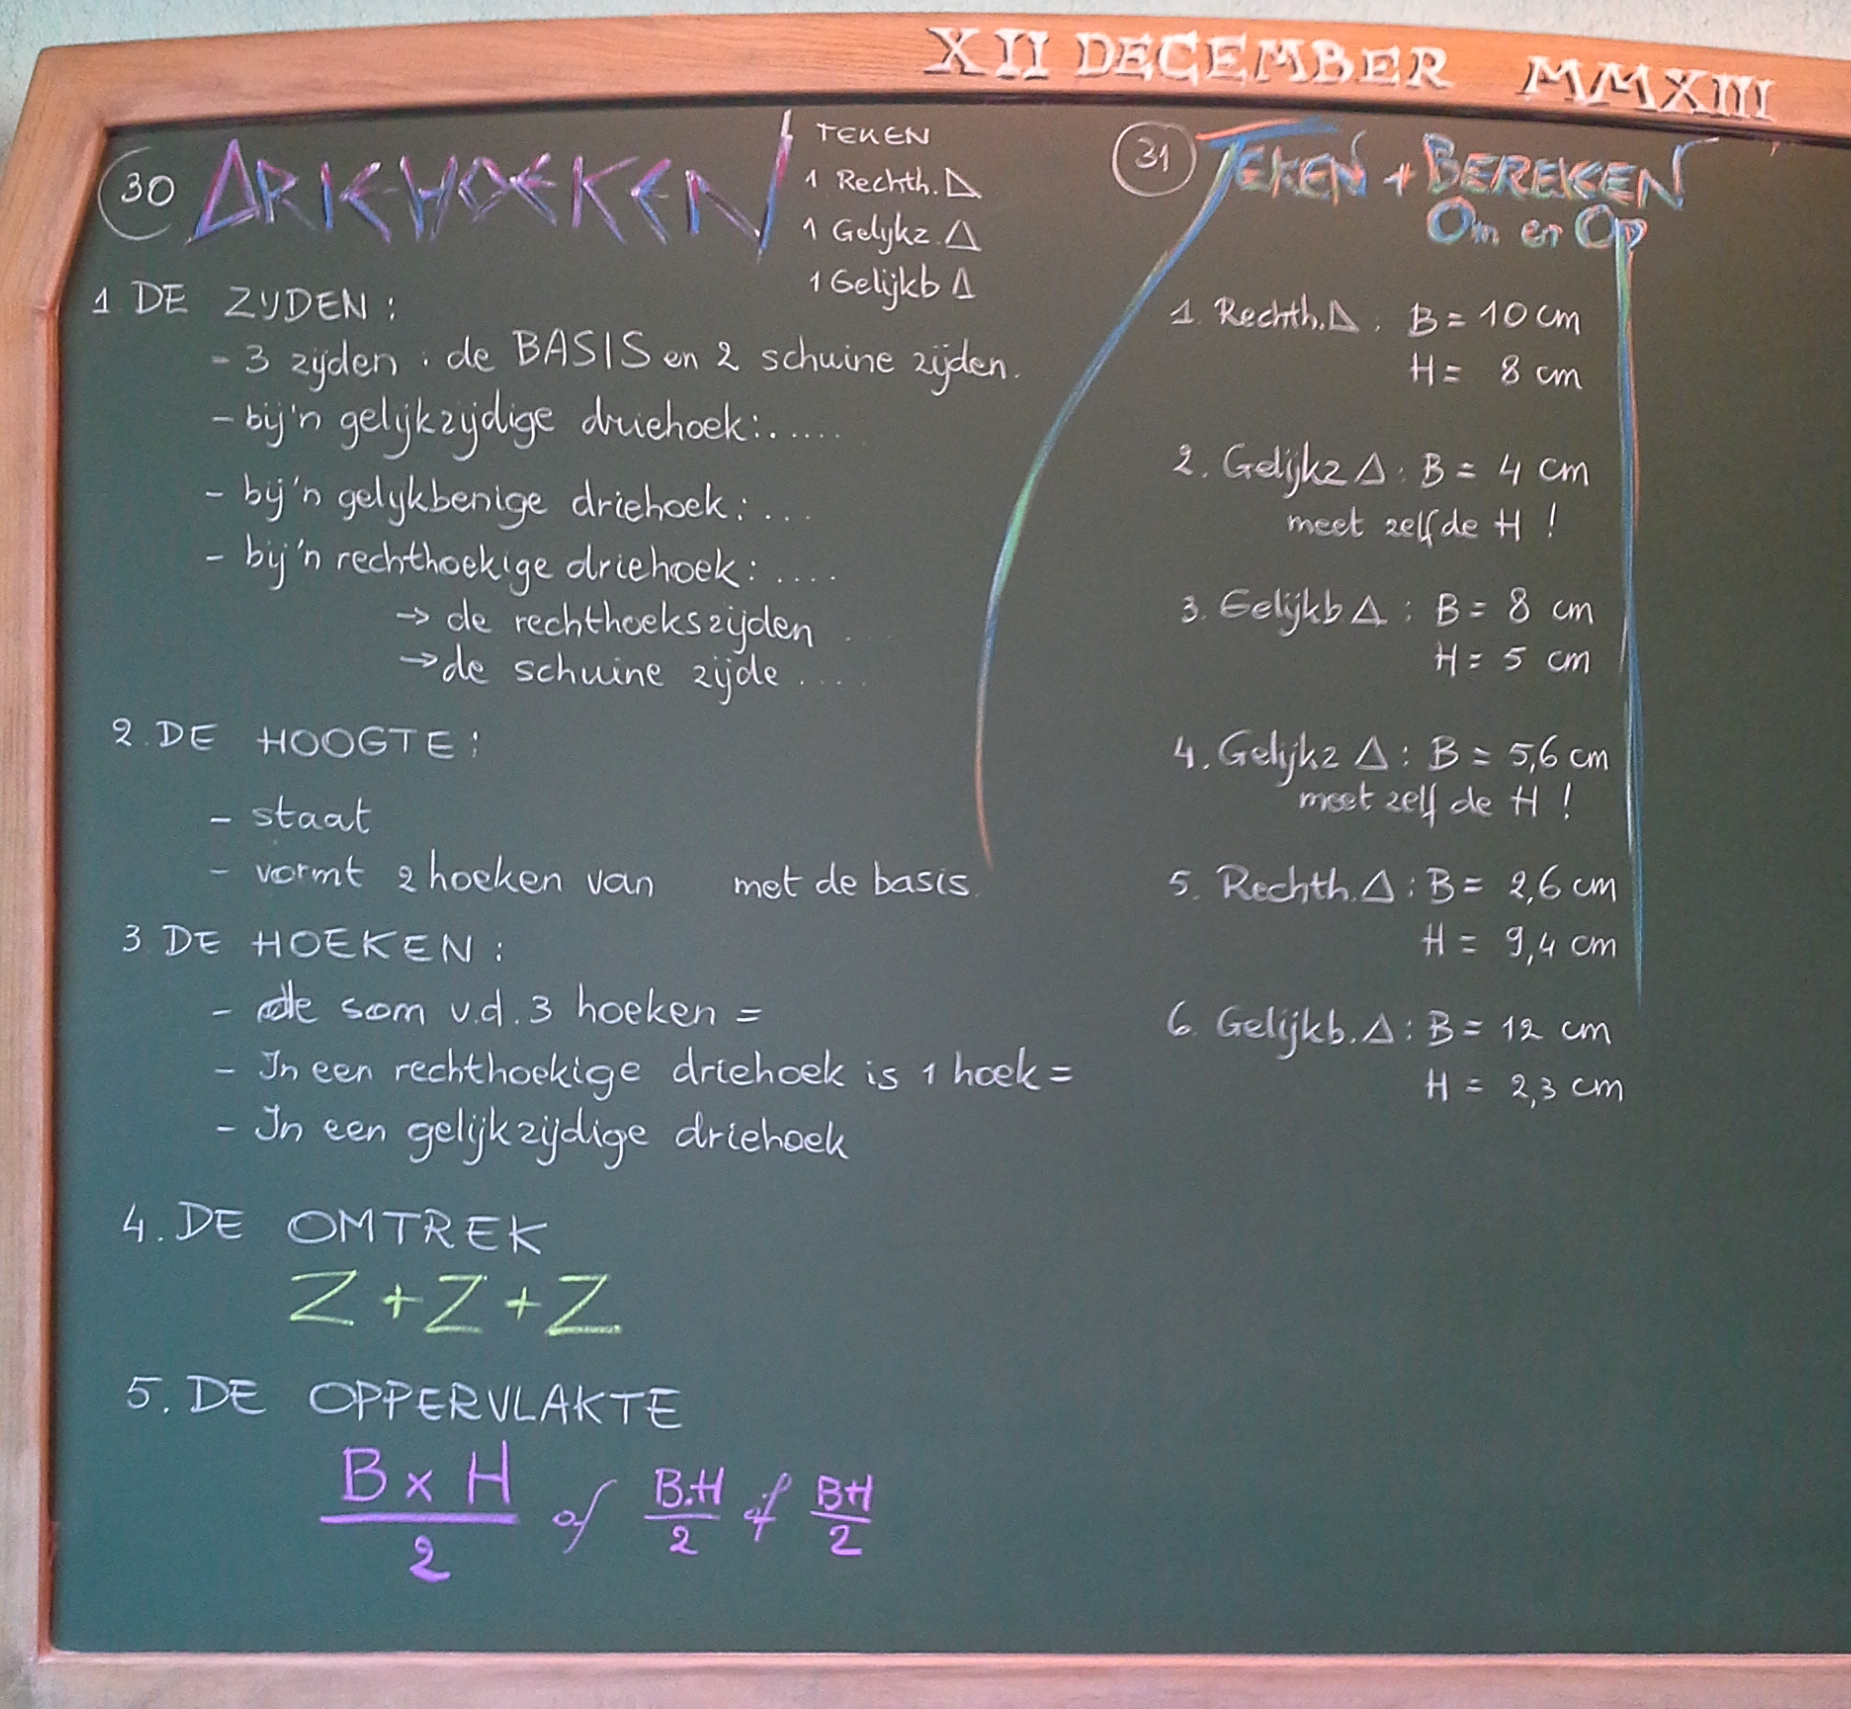 XII DECEMBER MMXIII
30 DRIEHOEKEN
TEKEN
1 Rechth.
1 Gelijkz.
1 Gelijkb
1 DE ZIJDEN:
- 3 zijden : de BASIS en 2 schuine zijden.
- bij'n gelijkzijdige driehoek:.....
- bij'n gelijkbenige driehoek:...
- bij'n rechthoekige driehoek:....
→ de rechthoekszijden
→ de schuine zijde ....
2. DE HOOGTE:
- staat
- vormt 2 hoeken van met de basis.
3 DE HOEKEN:
- de som v.d. 3 hoeken =
- In een rechthoekige driehoek is 1 hoek =
- In een gelijkzijdige driehoek
4. DE OMTREK
Z + Z + Z
5. DE OPPERVLAKTE
B x H / 2 of B.H / 2 of BH / 2
31 TEKEN + BEREKEN
Om en Op
1. Rechth. Δ: B = 10 cm
H = 8 cm
2. Gelijkz Δ: B = 4 cm
meet zelf de H !
3. Gelijkb Δ: B = 8 cm
H = 5 cm
4. Gelijkz Δ: B = 5,6 cm
meet zelf de H !
5. Rechth. Δ: B = 2,6 cm
H = 9,4 cm
6. Gelijkb. Δ: B = 12 cm
H = 2,3 cm